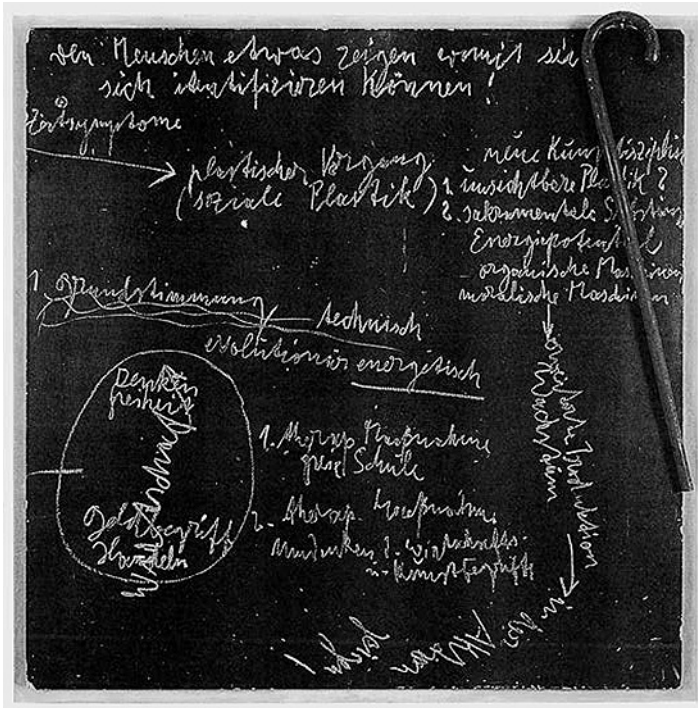 den Menschen etwas zeigen womit sie
sich identifizieren können!
Zeitsymptome
plastischer Vorgang
(soziale Plastik)
neue Kunstdisziplin
1. unsichtbare Plastik ?
2. sakramentale Substanz
Energiepotential
organische Maschinen
moralische Maschinen
1. Grundstimmung
technisch
evolutionär energetisch
Denken
freiheit
Wirtschaft
Geldbegriff
Handeln
1. therap. Maßnahme
freie Schule
2. therap. Maßnahme
Umdenken d. wirtschafts-
u. Kunstbegriffs
Produktion
in den